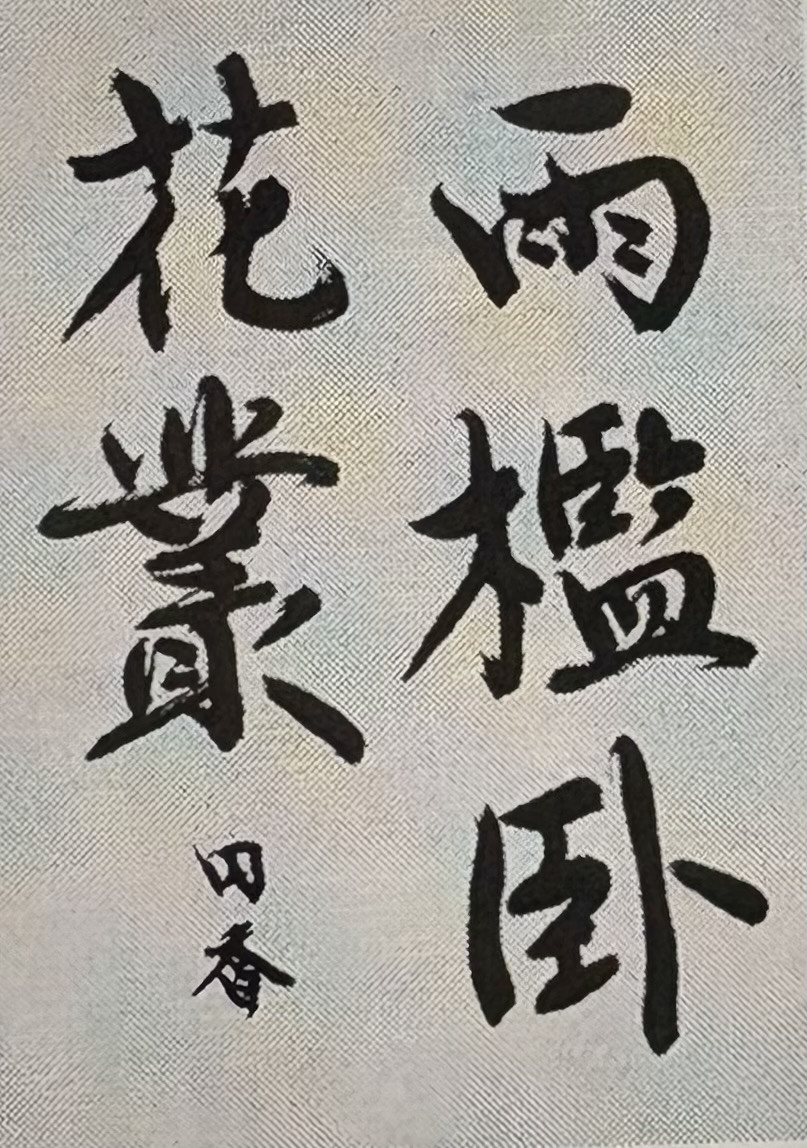 雨檻臥
花叢
田香